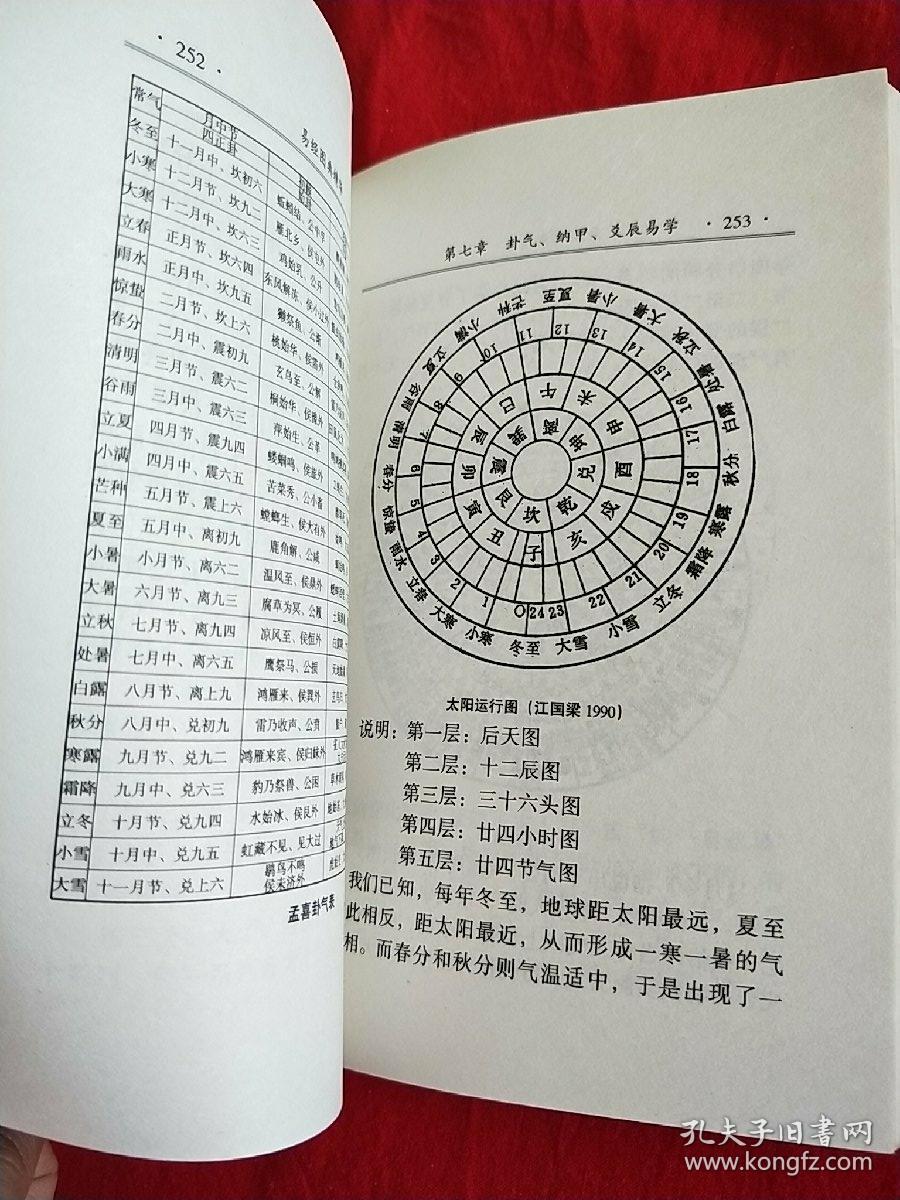 · 252 ·
易经图典
常气
月中节
四正卦
冬至 十一月中、坎初六 蚯蚓结、公中孚
小寒 十二月节、坎九二 雁北乡、侯屯外
大寒 十二月中、坎六三 鸡始乳、公升
立春 正月节、坎六四 东风解冻、侯小过外
雨水 正月中、坎九五 獭祭鱼、公渐
惊蛰 二月节、坎上六 桃始华、侯需外
春分 二月中、震初九 玄鸟至、公解
清明 三月节、震六二 桐始华、侯豫外
谷雨 三月中、震六三 萍始生、公革
立夏 四月节、震九四 蝼蝈鸣、侯旅外
小满 四月中、震六五 苦菜秀、公小畜
芒种 五月节、震上六 螳螂生、侯大有外
夏至 五月中、离初九 鹿角解、公咸
小暑 小月节、离六二 温风至、侯鼎外
大暑 六月节、离九三 腐草为冥、公履
立秋 七月节、离九四 凉风至、侯恒外
处暑 七月中、离六五 鹰祭马、公损
白露 八月节、离上九 鸿雁来、侯巽外
秋分 八月中、兑初九 雷乃收声、公贲
寒露 九月节、兑九二 鸿雁来宾、侯归昧外
霜降 九月中、兑六三 豹乃祭兽、公困
立冬 十月节、兑九四 水始冰、侯艮外
小雪 十月中、兑九五 虹藏不见、见大过
大雪 十一月节、兑上六 鹖鸟不鸣
侯未济外
孟喜卦气表
第七章 卦气、纳甲、爻辰易学 · 253 ·
冬至 小寒 大寒 立春 雨水 惊蛰 春分 清明 谷雨 立夏 小满 芒种 夏至 小暑 大暑 立秋 处暑 白露 秋分 寒露 霜降 立冬 小雪 大雪
0 1 2 3 4 5 6 7 8 9 10 11 12 13 14 15 16 17 18 19 20 21 22 23 24
子 丑 寅 卯 辰 巳 午 未 申 酉 戌 亥
坎 艮 震 巽 离 坤 兑 乾
太阳运行图(江国梁 1990)
说明:第一层:后天图
第二层:十二辰图
第三层:三十六头图
第四层:廿四小时图
第五层:廿四节气图
我们已知,每年冬至,地球距太阳最远,夏至
此相反,距太阳最近,从而形成一寒一暑的气
相。而春分和秋分则气温适中,于是出现了一
孔夫子旧書网
www.kongfz.com